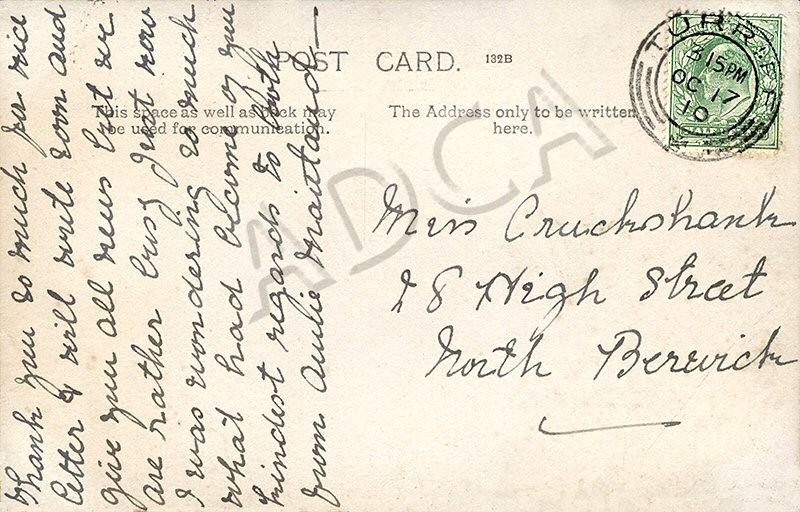 POST CARD. 132B
This space as well as back may
be used for communication.
The Address only to be written
here.
TURRIFF
3 15 PM
OC 17
10
Miss Cruckshank
28 High Street
North Berwick
Thank you so much for nice
letter & will write soon and
give you all news but we
are rather busy just now
I was wondering so much
what had become of you
kindest regards to both
from Maitland
ADCA